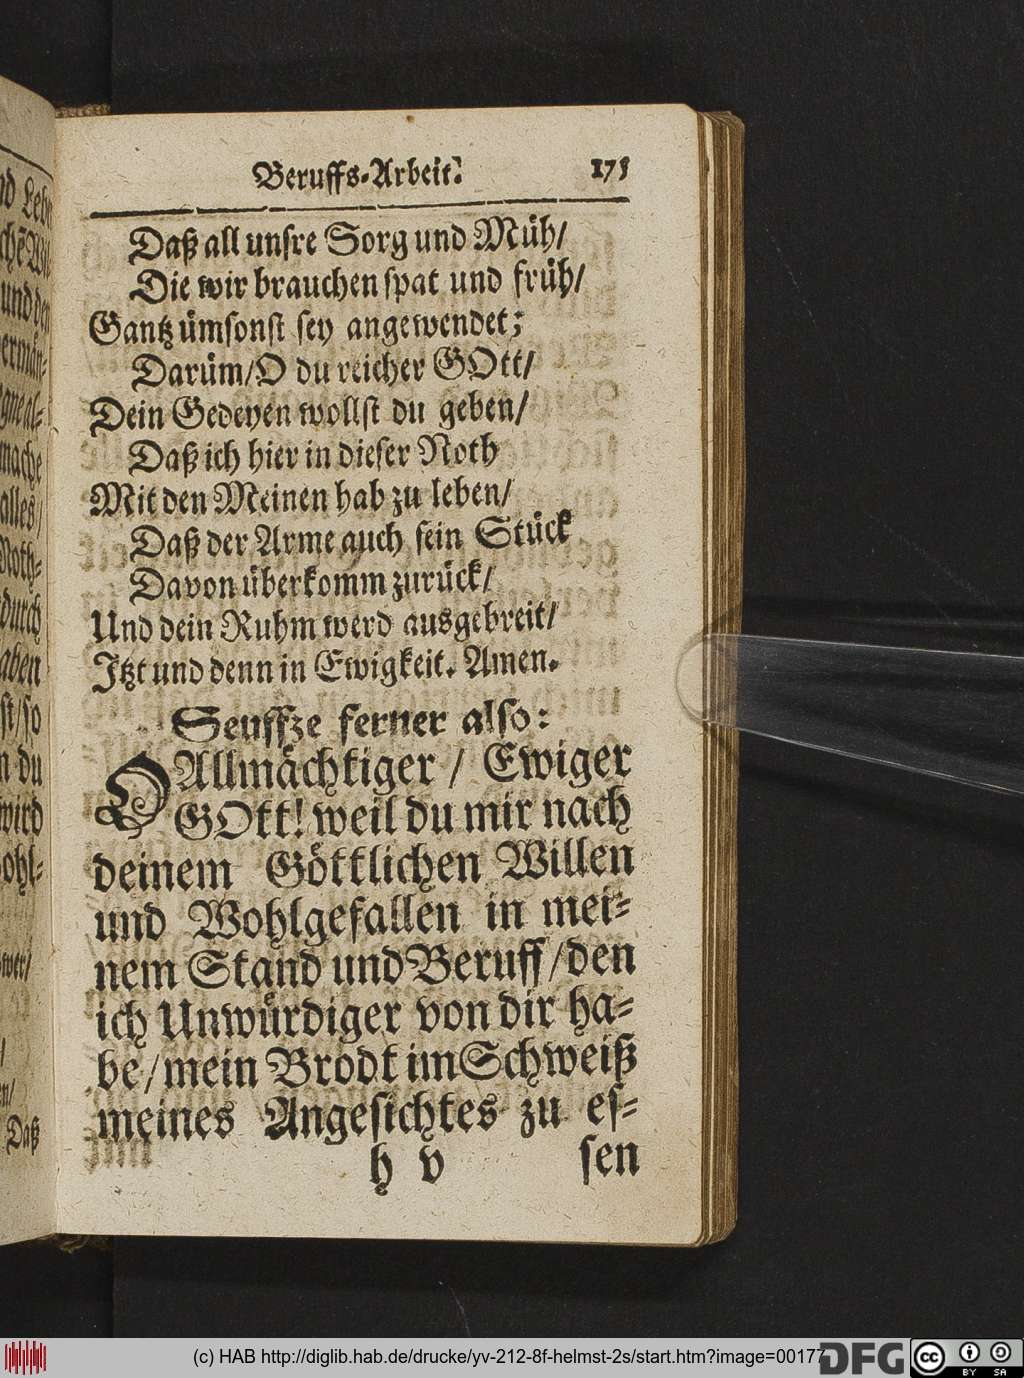 Beruffs-Arbeit. 175
Daß all unsre Sorg und Müh/
Die wir brauchen spat und früh/
Gantz ümsonst sey angewendet;
Darüm/ O du reicher GOtt/
Dein Gedeyen wollst du geben/
Daß ich hier in dieser Noth
Mit den Meinen hab zu leben/
Daß der Arme auch sein Stück
Davon überkomm zurück/
Und dein Ruhm werd ausgebreit/
Itzt und denn in Ewigkeit. Amen.
Seuffze ferner also:
O Allmächtiger / Ewiger
GOtt! weil du mir nach
deinem Göttlichen Willen
und Wohlgefallen in mei-
nem Stand und Beruff/ den
ich Unwürdiger von dir ha-
be/ mein Brodt im Schweiß
meines Angesichtes zu es-
h v sen
und den
mache
alles/
Noth-
durch
aben
st/ so
n du
wird
ohl-
Daß
(c) HAB http://diglib.hab.de/drucke/yv-212-8f-helmst-2s/start.htm?image=00177
DFG
cc BY SA